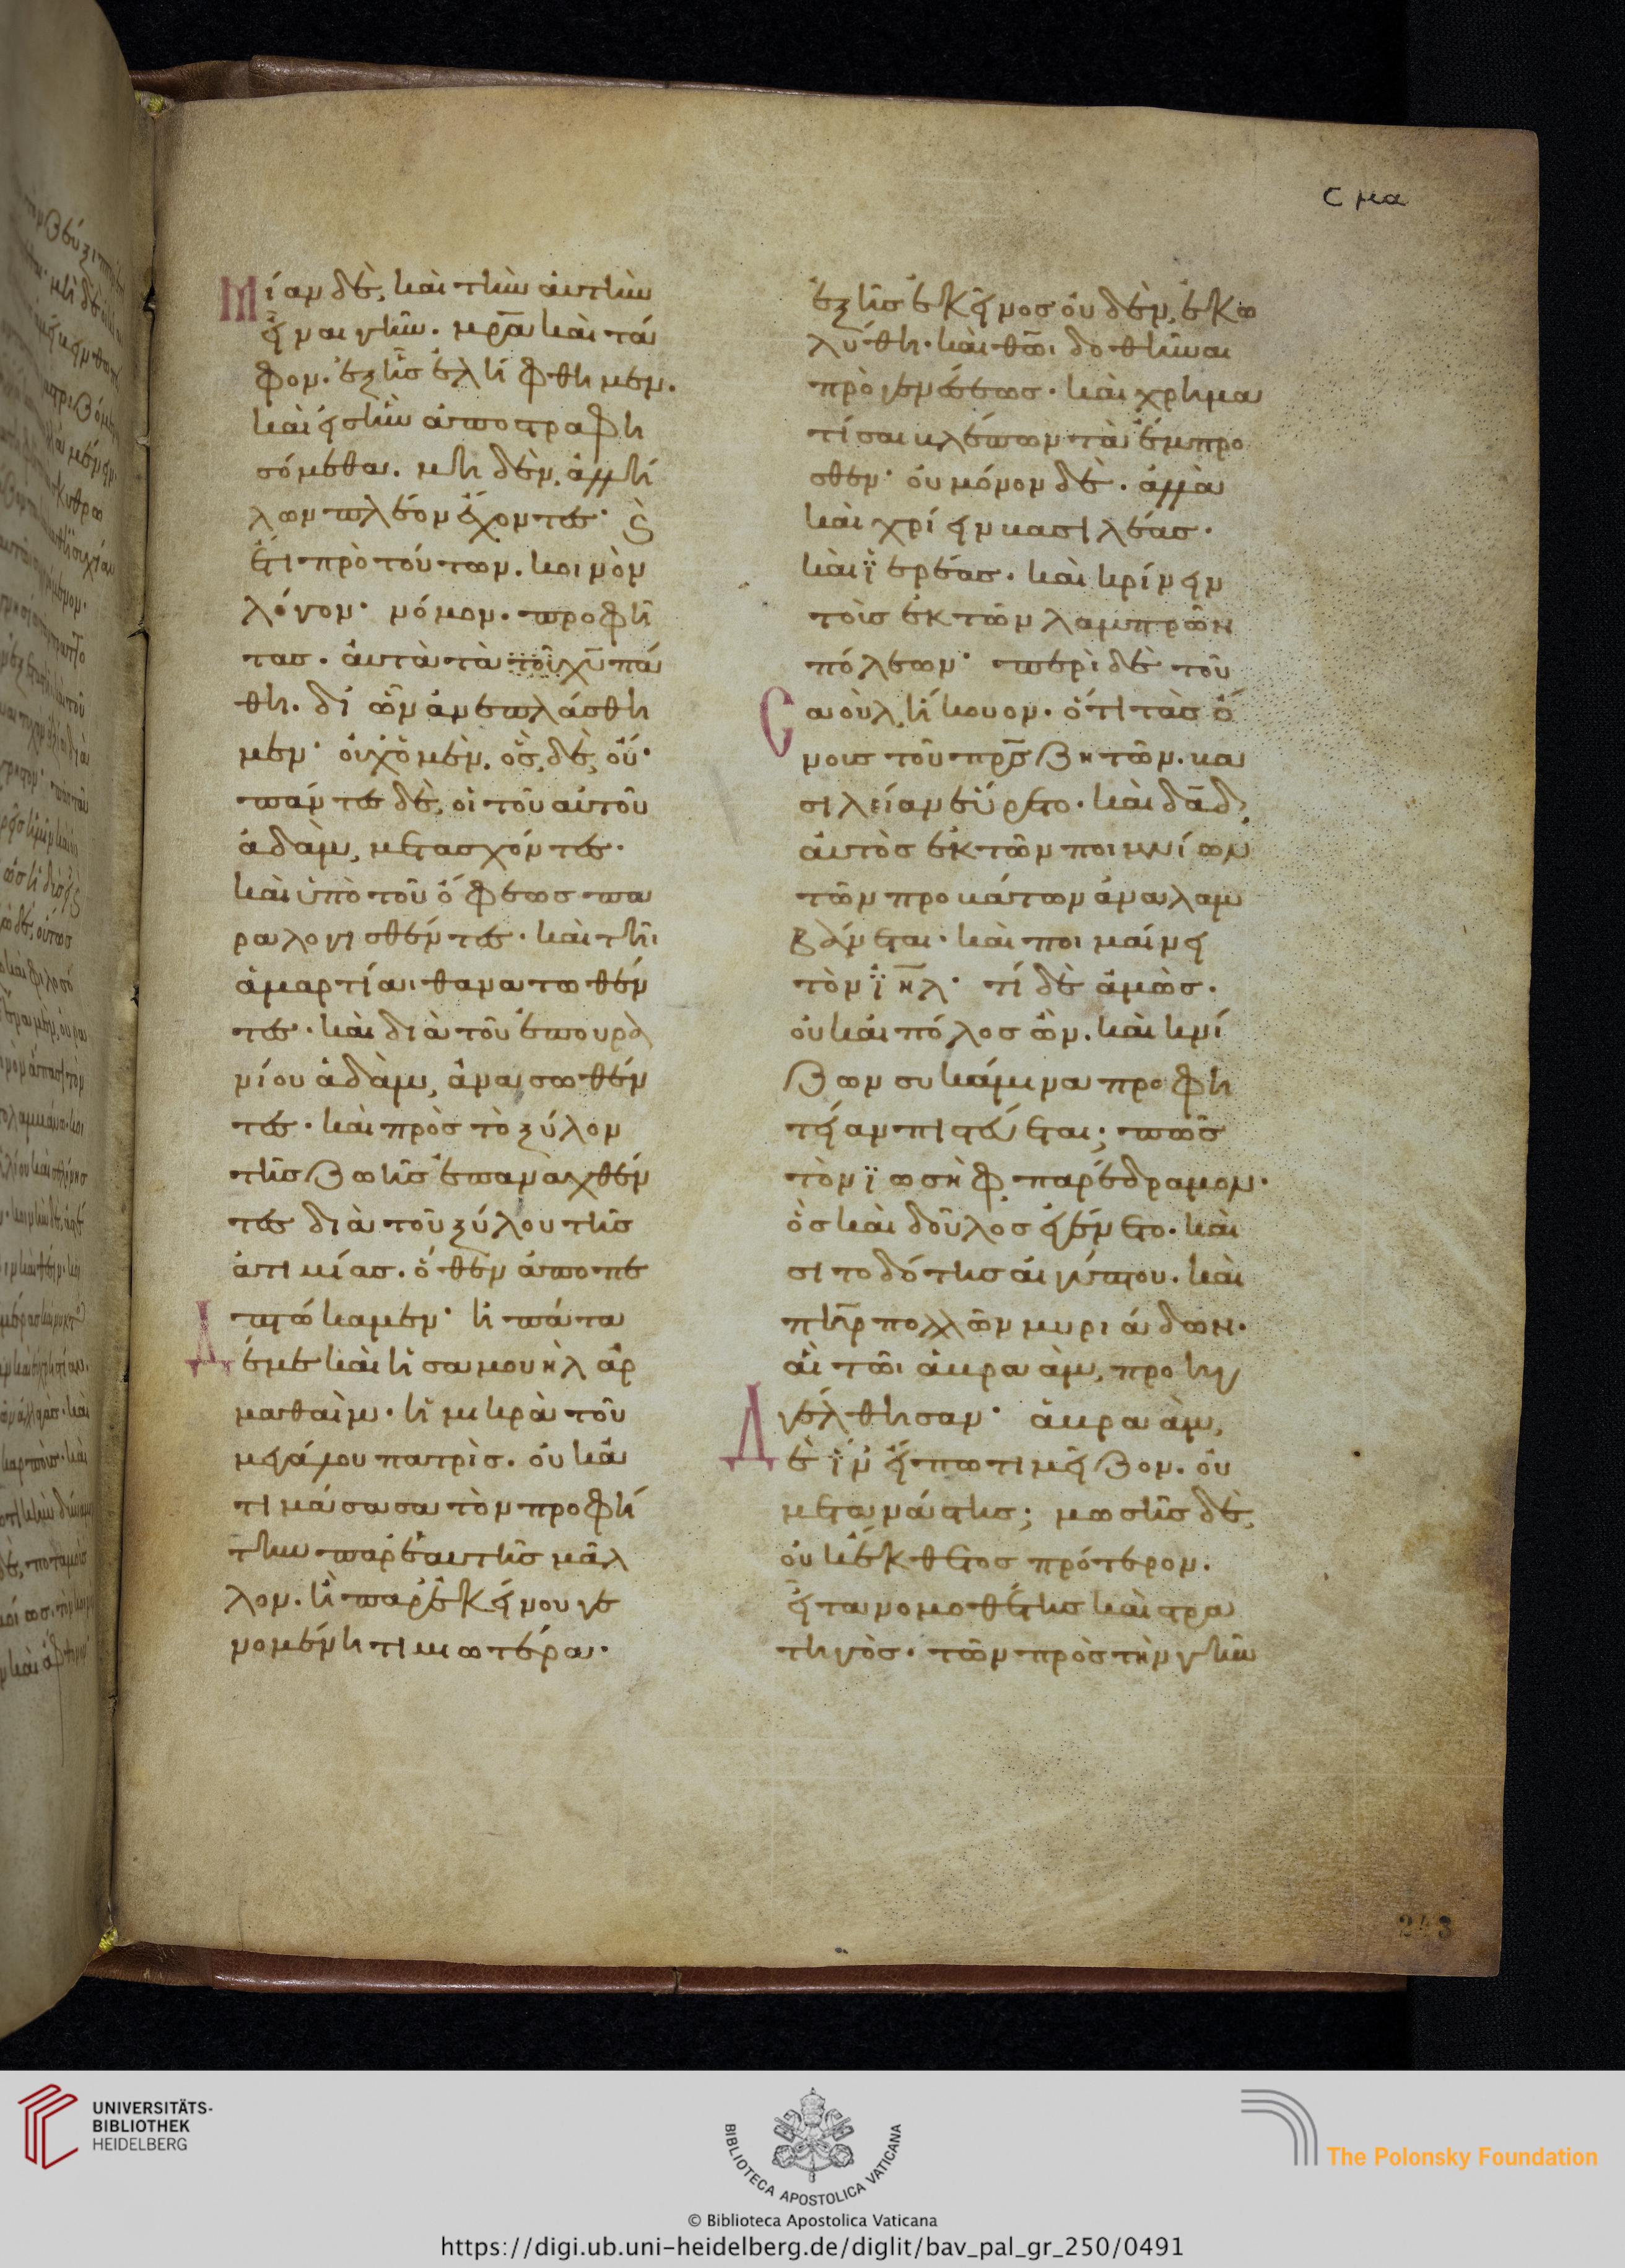 σμα
Μίαν δὲ, καὶ τὴν αὐτὴν
εἶναι γῆν. μρ̅α καὶ τά
φον. ἐξ ἧς ἐλήφθημεν.
καὶ εἰς ἣν ἀποστραφη
σόμεθα. μηδὲν, ἀλλή
λων πλέον ἔχοντες· ϗ
ἔτι πρὸ τούτων. κοινὸν
λόγον· νόμον. προφή
τας. αὐτὰ τὰ τοῦ χυ̅ πά
θη. δι ὧν ἀνεπλάσθη
μεν· οὐχ ὃ μὲν, ὃς, δὲ, οὔ·
πάντες δὲ, οἱ τοῦ αὐτοῦ
ἀδὰμ, μετασχόντες·
καὶ ὑπὸ τοῦ ὄφεως πα
ραλογισθέντες· καὶ τῆι
ἁμαρτίαι θανατωθέν
τες· καὶ διὰ τοῦ ἐπουρα
νίου ἀδὰμ, ἀνασωθέν
τες· καὶ πρὸς τὸ ξύλον
τῆς ζωῆς ἐπαναχθέν
τες διὰ τοῦ ξύλου τῆς
ἀτιμίας. ὅθεν ἀποπε
πτώκαμεν· ἠπάτα
Δὲ ἐμὲ καὶ ἡ σαμουὴλ ἀρ
μαθαὶμ· ἡ μικρὰ τοῦ
μεγάλου πατρὶς. οὐκ ἀ
τιμάσασα τὸν προφή
την παρ ἑαυτῆς μᾶλ
λον. ἢ παρ ἐκείνου γε
νομένη τιμωτέρα·
ἐξ ἧς ἐκεῖνος οὐδὲν, ἐκω
λύθη· καὶ θῶι δοθῆναι
πρὸ γενέσεως· καὶ χρημα
τίσαι βλέπων τὰ ἔμπρο
σθεν· οὐ μόνον δὲ. ἀλλὰ
καὶ χρίειν βασιλέας·
καὶ ϊερέας. καὶ κρίνειν
τοὺς ἐκ τῶν λαμπρῶν
πόλεων· περὶ δὲ τοῦ
Σαοὺλ ἤκουον. ὅτι τὰς ὄ
νους τοῦ πρ̅ς ζητῶν. βα
σιλείαν εὕρετο. καὶ δα̅δ,
αὐτὸς ἐκ τῶν ποιμνίων
τῶν προβάτων ἀναλαμ
βάνεται· καὶ ποιμαίνει
τὸν ϊη̅λ· τί δὲ ἀμὼς.
οὐκ αἰπόλος ὢν. καὶ κνί
ζων συκάμινα προφη
τείαν πιστεύεται; πῶς
τὸν ϊωσὴφ παρέδραμον.
ὃς καὶ δοῦλος ἐγένετο. καὶ
σιτοδότης αἰγύπτου. καὶ
πη̅ρ πολλῶν μυριάδων.
αἳ τῶι ἁβραὰμ, προεπη
γγέλθησαν· ἁβραὰμ,
Δὲ ἵν εἴπω τι μεῖζον. οὐ
μετανάστης; μωσῆς δὲ,
οὐκ ἔκθετος πρότερον.
εἶτα νομοθέτης καὶ στρα
τηγὸς. τῶν πρὸς τὴν γῆν
243
UNIVERSITÄTS-
BIBLIOTHEK
HEIDELBERG
BIBLIOTECA APOSTOLICA VATICANA
The Polonsky Foundation
© Biblioteca Apostolica Vaticana
https://digi.ub.uni-heidelberg.de/diglit/bav_pal_gr_250/0491